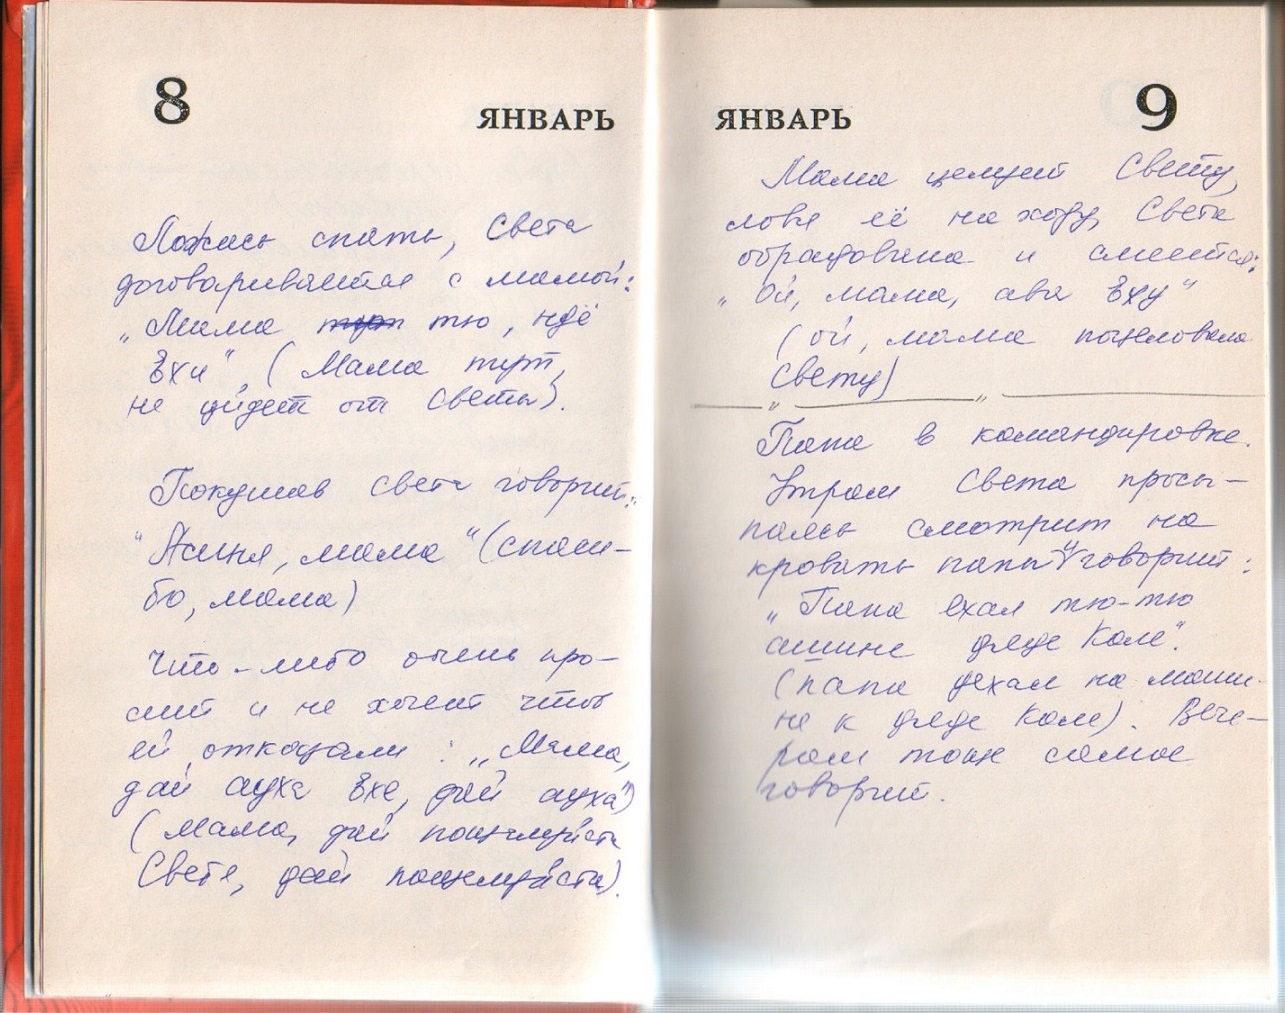 8
ЯНВАРЬ
Ложась спать, Света
договаривается с мамой:
„Мама тют тю, идё
Вхи", (Мама тут,
не уйдет от Светы).
Покушав Света говорит:
"Асиня, мама" (спаси-
бо, мама)
Что-либо очень про-
сит и не хочет чтоб
ей отказали: „Мама,
дай аука Вхе, дай аука"
(мама, дай пожалуйста
Свете, дай пожалуйста).
ЯНВАРЬ
9
Мама целует Свету,
ловя её на ходу, Света
обрадована и смеется:
„Ой, мама, ава Вху"
(ой, мама поцеловала
Свету)
Папа в командировке.
Утром Света просы-
паясь смотрит на
кровать папы и говорит:
„Папа ехал тю-тю
ашине дяде Коле".
(папа уехал на маши-
не к дяде Коле). Вече-
ром тоже самое
говорит.